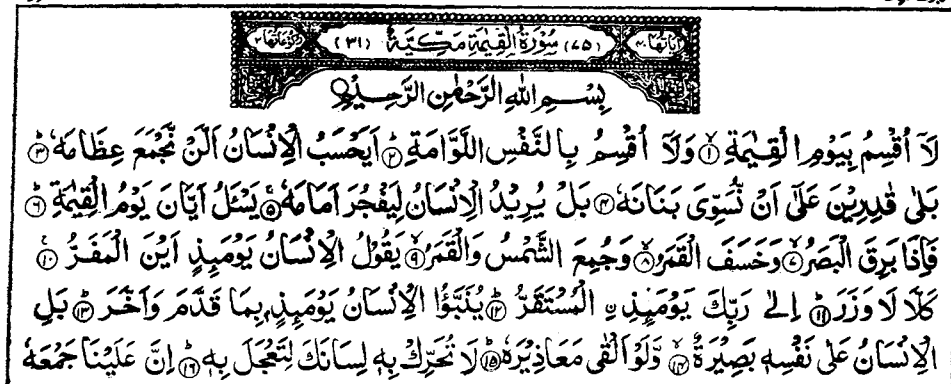 اٰیَاتُهَا ۴۰ (۷۵) سُوْرَةُ الْقِیٰمَةِ مَكِّیَّةٌ (۳۱) رُكُوْعَاتُهَا ۲
بِسْمِ اللهِ الرَّحْمٰنِ الرَّحِیْمِ
لَاۤ اُقْسِمُ بِیَوْمِ الْقِیٰمَةِ ۙ﴿۱﴾ وَلَاۤ اُقْسِمُ بِالنَّفْسِ اللَّوَّامَةِ ؕ﴿۲﴾ اَیَحْسَبُ الْاِنْسَانُ اَلَّنْ نَّجْمَعَ عِظَامَهٗ ؕ﴿۳﴾
بَلٰی قٰدِرِیْنَ عَلٰۤی اَنْ نُّسَوِّیَ بَنَانَهٗ ﴿۴﴾ بَلْ یُرِیْدُ الْاِنْسَانُ لِیَفْجُرَ اَمَامَهٗ ۚ﴿۵﴾ یَسْـَٔلُ اَیَّانَ یَوْمُ الْقِیٰمَةِ ؕ﴿۶﴾
فَاِذَا بَرِقَ الْبَصَرُ ۙ﴿۷﴾ وَخَسَفَ الْقَمَرُ ۙ﴿۸﴾ وَجُمِعَ الشَّمْسُ وَالْقَمَرُ ۙ﴿۹﴾ یَقُوْلُ الْاِنْسَانُ یَوْمَىِٕذٍ اَیْنَ الْمَفَرُّ ۚ﴿۱۰﴾
كَلَّا لَا وَزَرَ ؕ﴿۱۱﴾ اِلٰی رَبِّكَ یَوْمَىِٕذِ ِ۟الْمُسْتَقَرُّ ؕ﴿۱۲﴾ یُنَبَّؤُا الْاِنْسَانُ یَوْمَىِٕذٍۭ بِمَا قَدَّمَ وَاَخَّرَ ؕ﴿۱۳﴾ بَلِ
الْاِنْسَانُ عَلٰی نَفْسِهٖ بَصِیْرَةٌ ۙ﴿۱۴﴾ وَّلَوْ اَلْقٰی مَعَاذِیْرَهٗ ؕ﴿۱۵﴾ لَا تُحَرِّكْ بِهٖ لِسَانَكَ لِتَعْجَلَ بِهٖ ؕ﴿۱۶﴾ اِنَّ عَلَیْنَا جَمْعَهٗ